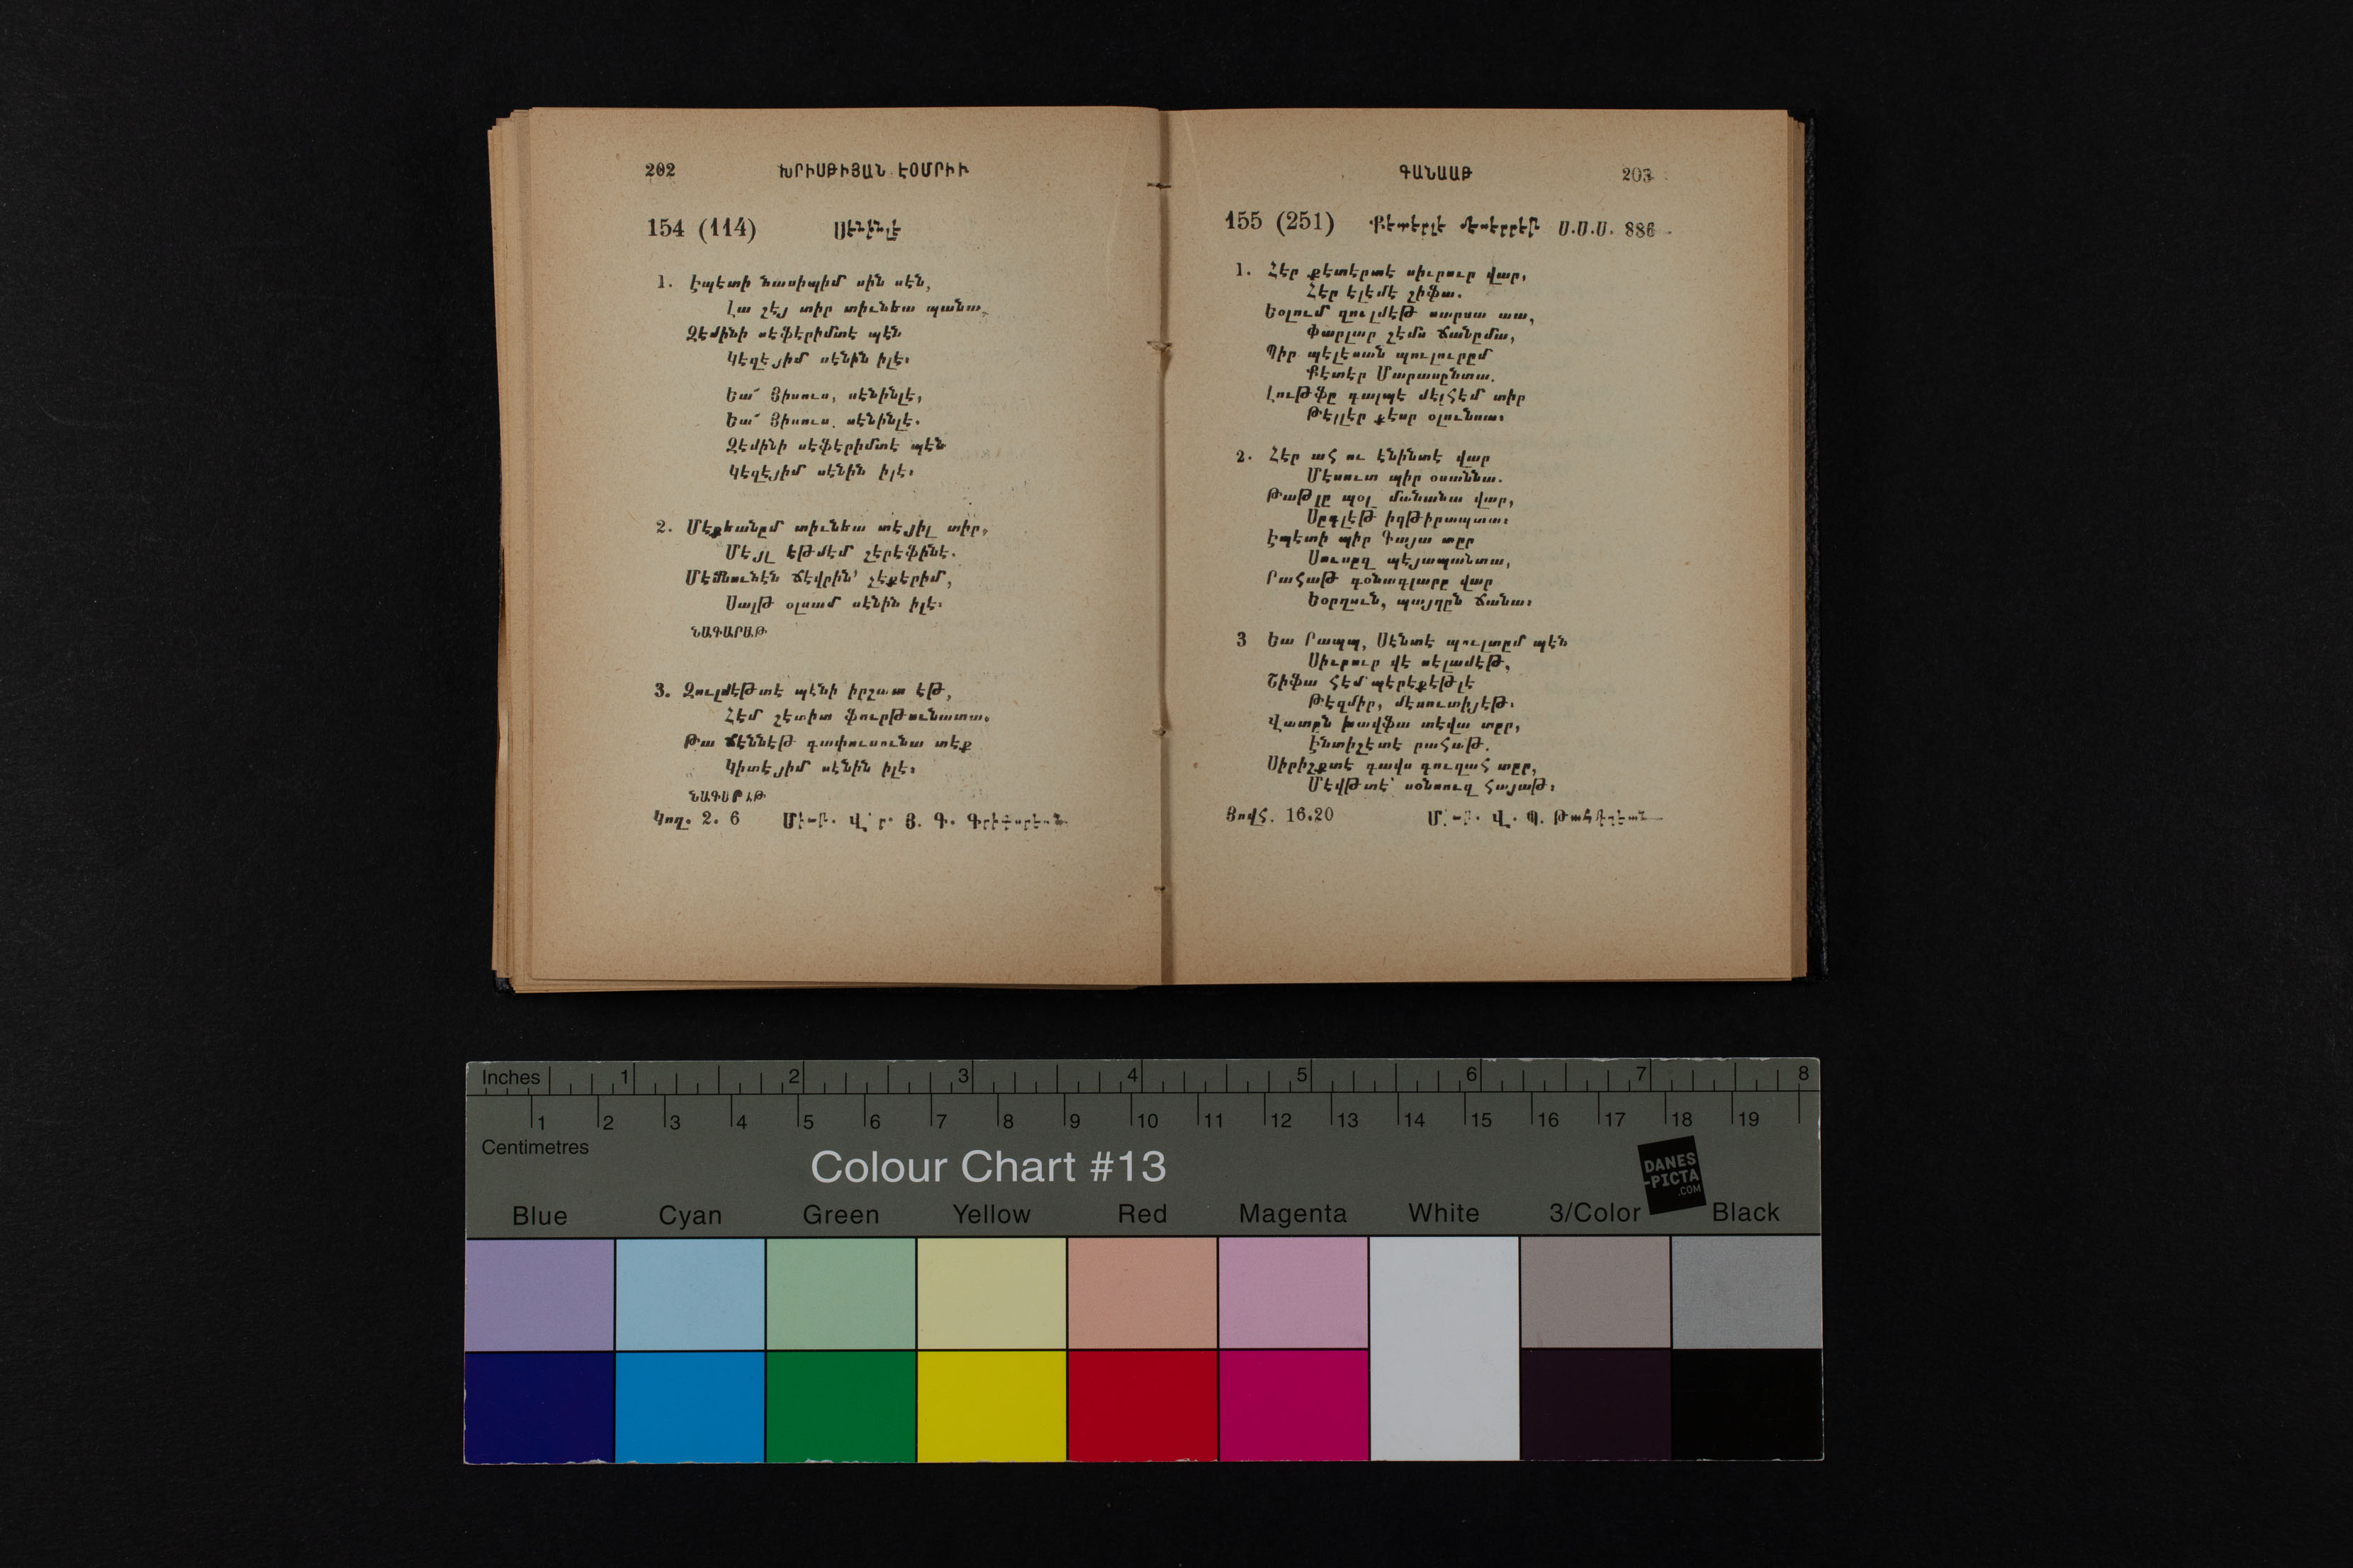 202 ԽՐԻՍԹԻՅԱՆ ԷՕՄՐԻԻ
154 (114) Սէնինլէ
1. Էպէտի նասիպիմ սին սէն,
Լա շէյ տիր տիւնեա պանա.
Զէմինի սէֆէրիմտէ պէն
Կէզէյիմ սէնին իլէ։
Եա՜ Յիսուս, սէնինլէ,
Եա՜ Յիսուս. սէնինլէ.
Զէմինի սէֆէրիմտէ պէն
Կէզէյիմ սէնին իլէ։
2. Մէքեանըմ տիւնեա տէյիլ տիր.
Մէյլ էթմէմ շէրէֆինէ.
Մէմնունէն ճէվրին՝ չէքէրիմ,
Սալթ օլսամ սէնին իլէ։
ՆԱԳԱՐԱԹ
3. Զուլմէթտէ պէնի իրշատ էթ,
Հէմ շէտիտ ֆուրթունատա.
Թա ճէննէթ գափուսունա տէք
Կիտէյիմ սէնին իլէ։
ՆԱԳԱՐԱԹ
Կող. 2. 6 Յ. Գ.
ԳԱՆԱԱԹ 203
155 (251) Քէտէրլէ Մ.Ս. 886
1. Հէր քէտէրտէ սիւրուր վար,
Հէր էլէմէ շիֆա.
Եօլում զուլմէթ սարսա աա,
Փարլար շէմս ճանըմա,
Պիր պէլէսան պուլուրըմ
Քէտէր Մարասընտա.
Լութֆը գալպէ մէլհէմ տիր
Թէլլէր քէսր օլունսա։
2. Հէր ահ ու էնինտէ վար
Մէսուտ պիր օսաննա.
Թաթլը պօլ մանանա վար,
Սըգլէթ իզթիրապտա։
Էպէտի պիր Գայա տըր
Սուսըզ պէյապանտա,
Րահաթ գօնագլարը վար
Եօրղուն, պայղըն ճանա։
3 Եա Րապպ, Սէնտէ պուլտըմ պէն
Սիւրուր վէ սէլամէթ,
Շիֆա հէմ պէրէքէթլէ
Թէզմիր, մէսուտիյէթ.
Վատըն խավֆա տէվա տըր,
Էնտիշէտէ րահաթ.
Սիրիշքտէ գավս գուզահ տըր,
Մէվթտէ՝ սօնսուզ հայաթ։
Յովհ. 16.20 Վ. Պ.
Inches 1 2 3 4 5 6 7 8
1 2 3 4 5 6 7 8 9 10 11 12 13 14 15 16 17 18 19
Centimetres
Colour Chart #13
DANES
-PICTA
.COM
Blue Cyan Green Yellow Red Magenta White 3/Color Black